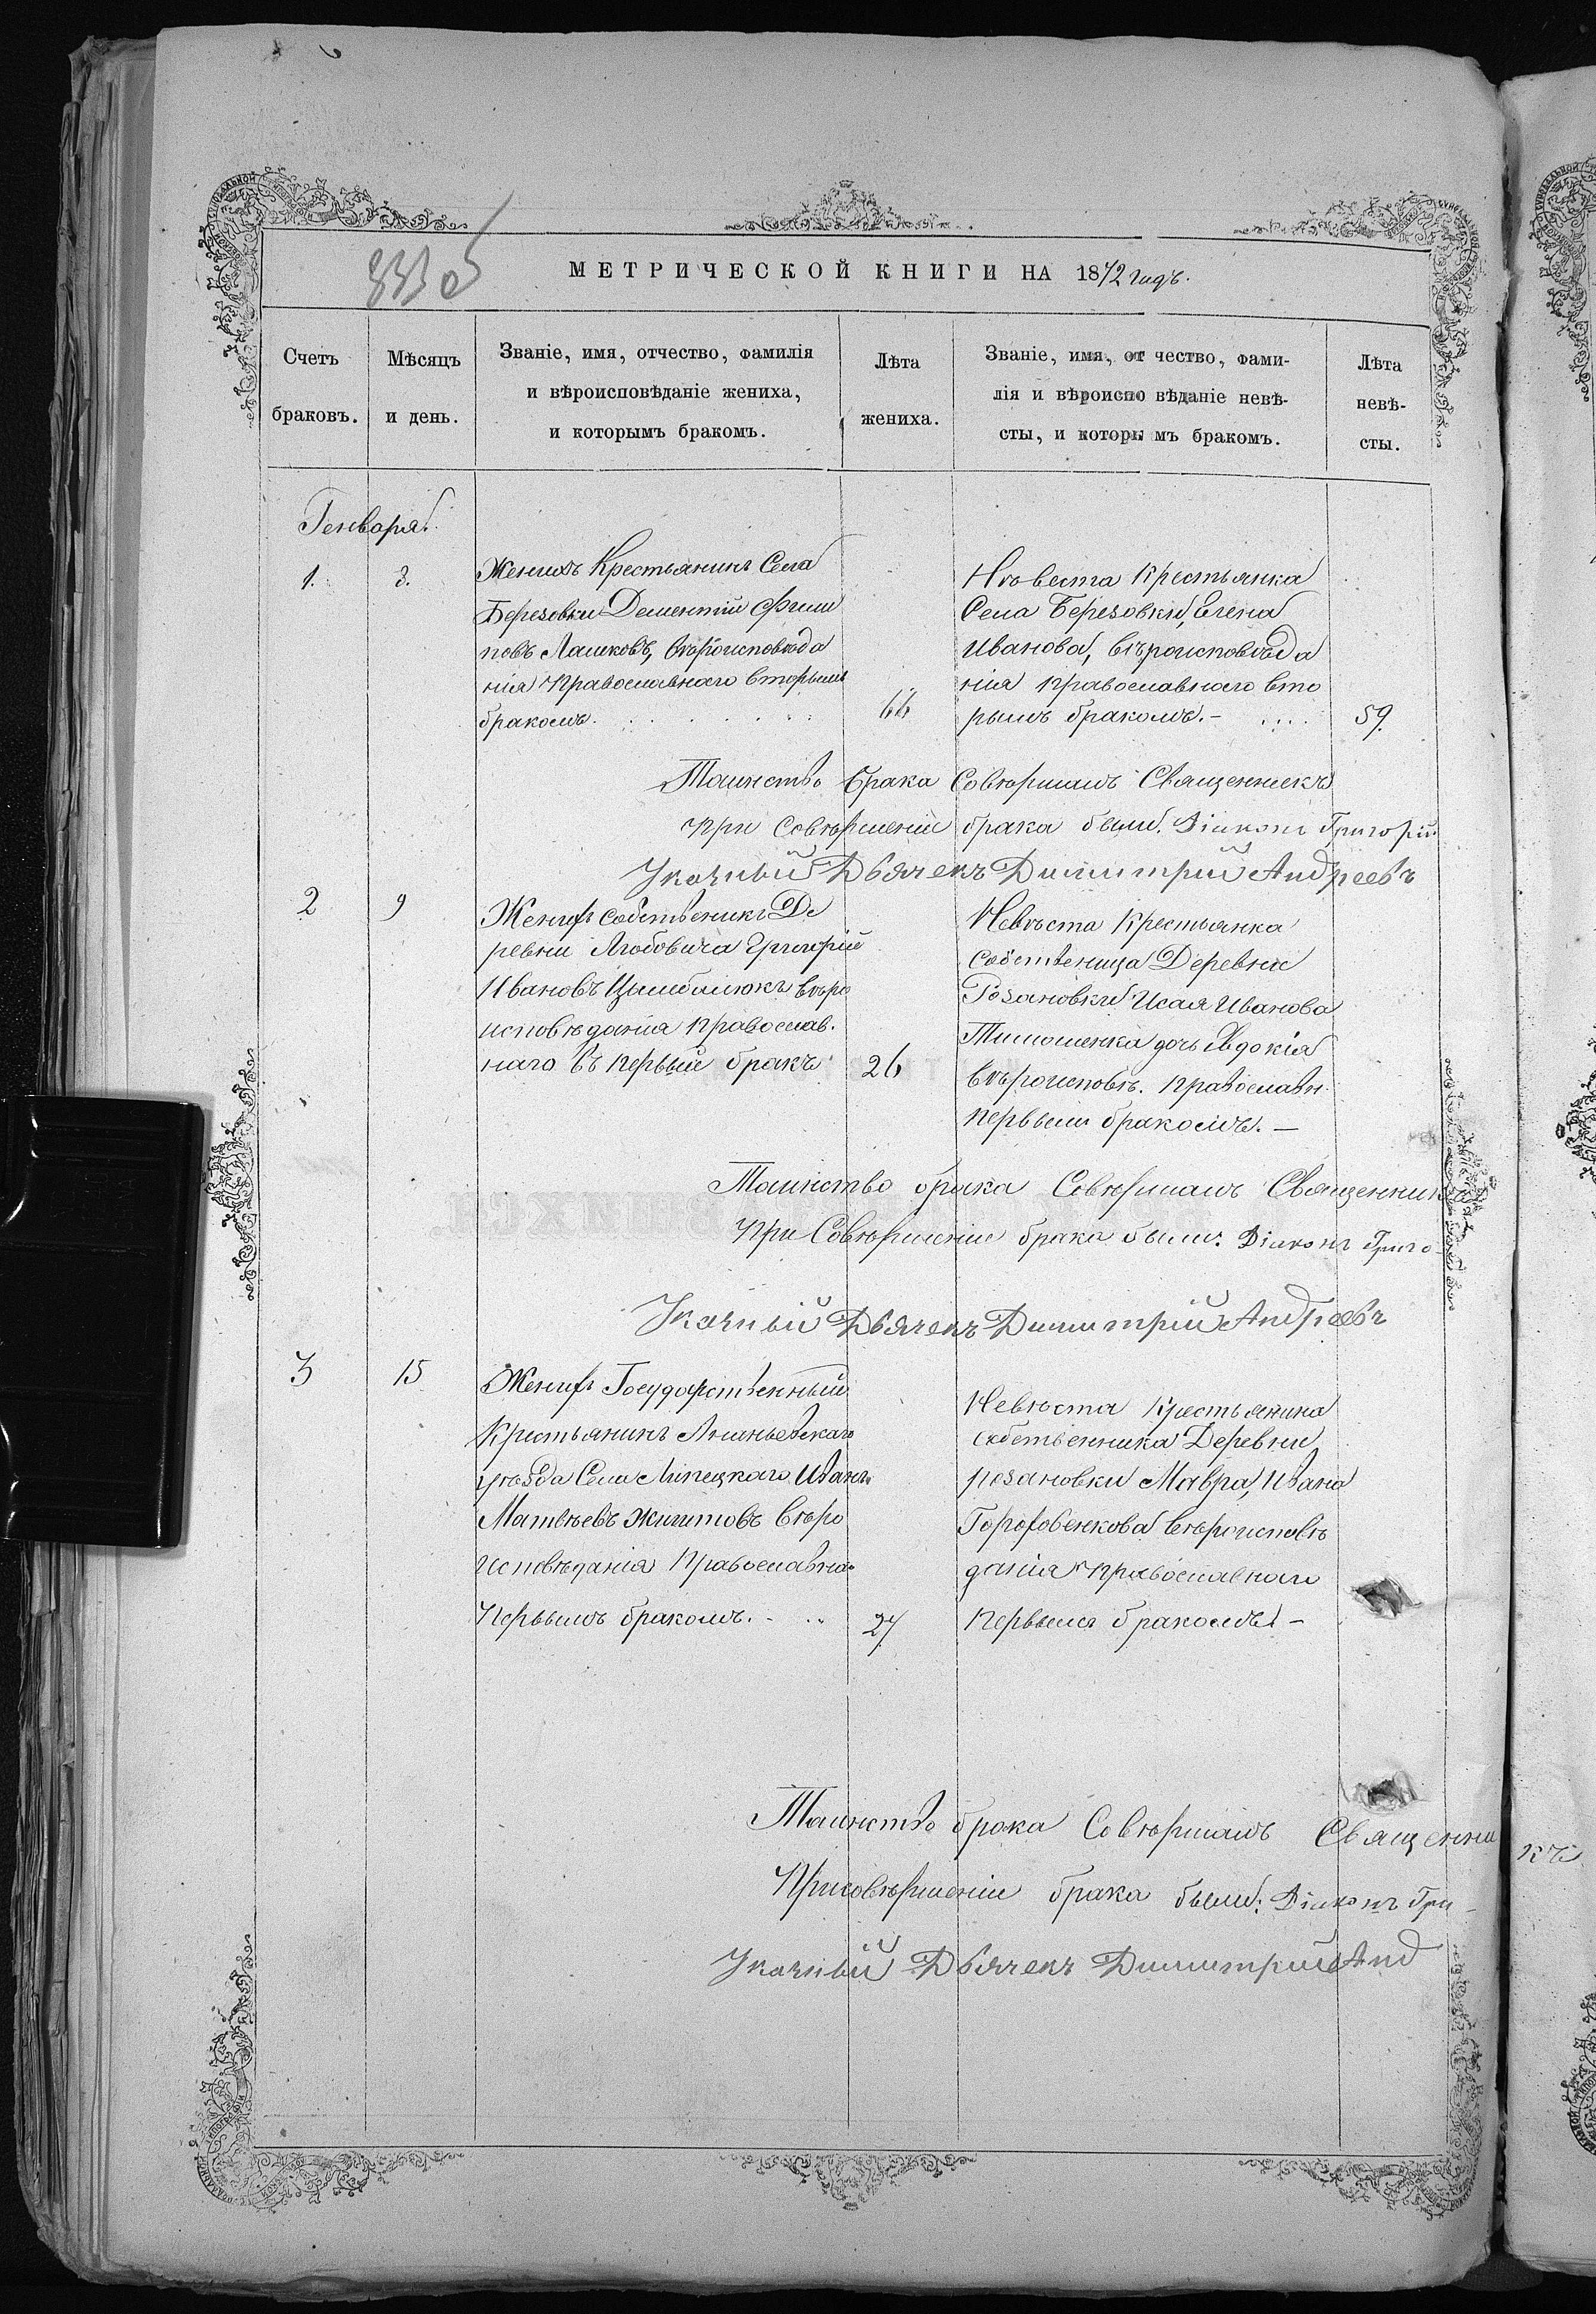 МЕТРИЧЕСКОЙ КНИГИ НА 1872 годъ.
Счетъ браковъ.
Мѣсяцъ и день.
Званіе, имя, отчество, фамилія
и вѣроисповѣданіе жениха,
и которымъ бракомъ.
Лѣта
жениха.
Званіе, имя, отчество, фами-
лія и вѣроисповѣданіе невѣ-
сты, и которымъ бракомъ.
Лѣта
невѣ-
сты.
Генваря.
1. 3.
Женихъ Крестьянинъ Села
Березовки Дементій Фили
повъ Лашковъ, вѣроисповѣда
нія Православнаго вторымъ
бракомъ. 66
Невѣста Крестьянка
Села Березовки, Елена
Иванова, вѣроисповѣда
нія православнаго вто
рымъ бракомъ.- 59.
Таинство брака Совѣршалъ Священникъ
при Совѣршеніи брака были. Діаконъ Григорій
Указный Дьячекъ Димитрій Андреевъ
2 9
Женихъ собственикъ Де
ревни Григорій
Ивановъ Цымбалюкъ вѣро
исповѣданія православ.
наго въ первый бракъ 26
Невѣста Крестьянка
собственица Деревни
Розановки Исая Иванова
Тимошенка дочь Евдокія
вѣроисповѣ. православн.
первымъ бракомъ.-
Таинство брака Совѣршалъ Священникъ
При Совѣршеніи брака были: Діаконъ Григо-
Указный Дьячекъ Димитрій Андреевъ
3 15
Женихъ Государственный
Крестьянинъ Ананьевскаго
уѣзда Села Липецкаго Иванъ
Матвѣевъ Жигитовъ вѣро
исповѣданія Православна
первымъ бракомъ. 27
Невѣста Крестьянина
собственника Деревни
Розановки Мавра, Ивана
вѣроисповѣ
данія православнаго
первымъ бракомъ.-
Таинство брака Совѣршалъ Священни
къ
При совѣршеніи брака были: Діаконъ Гри-
Указный Дьячекъ Димитрій Анд